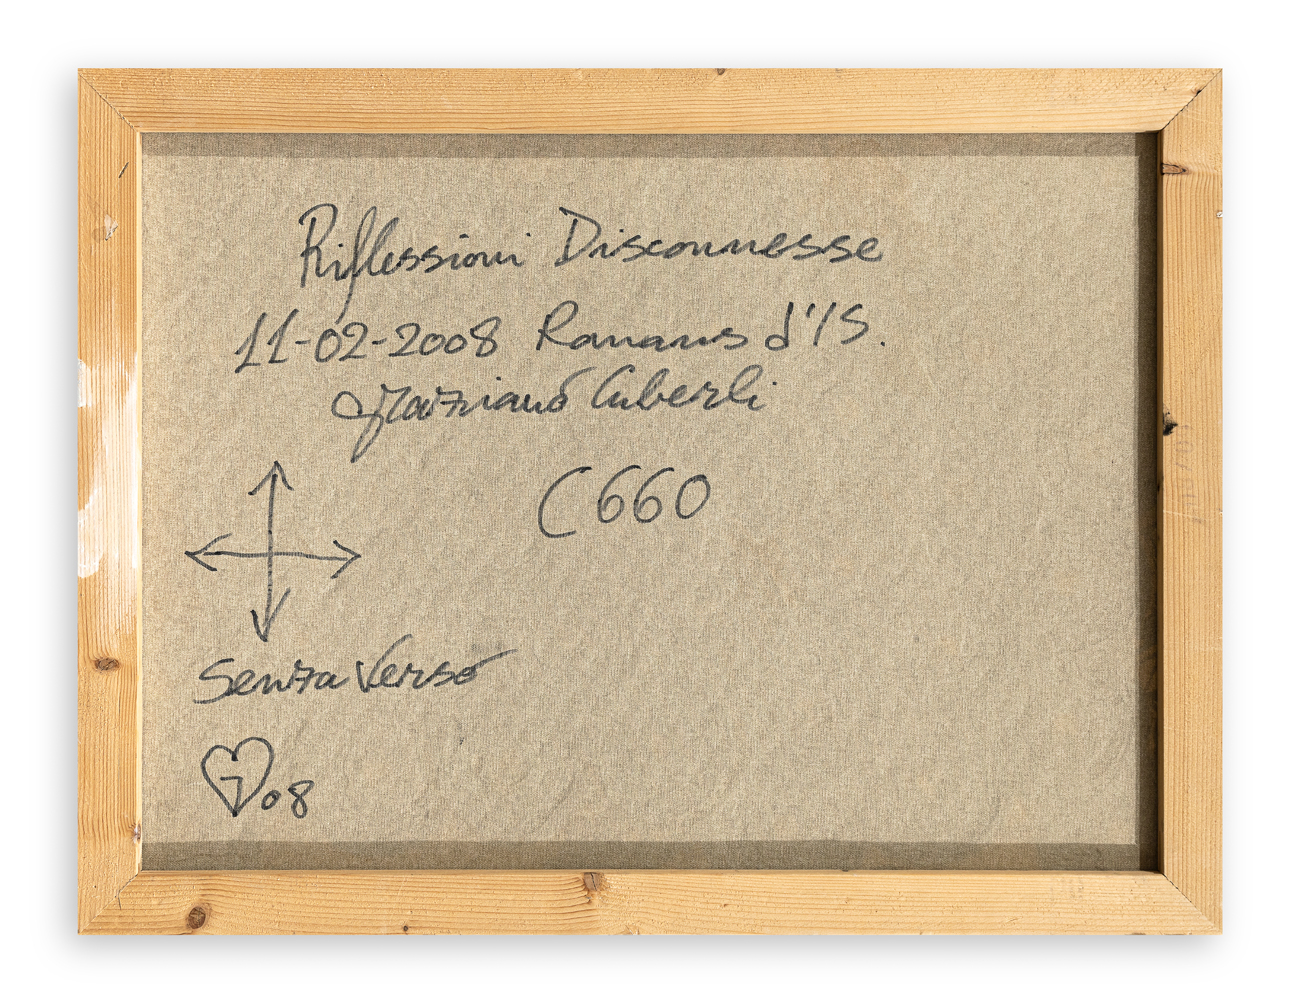 Riflessioni Disconnesse
11-02-2008 Romans d'IS.
Graziano Cuberli
C660
Senza Verso
G 08